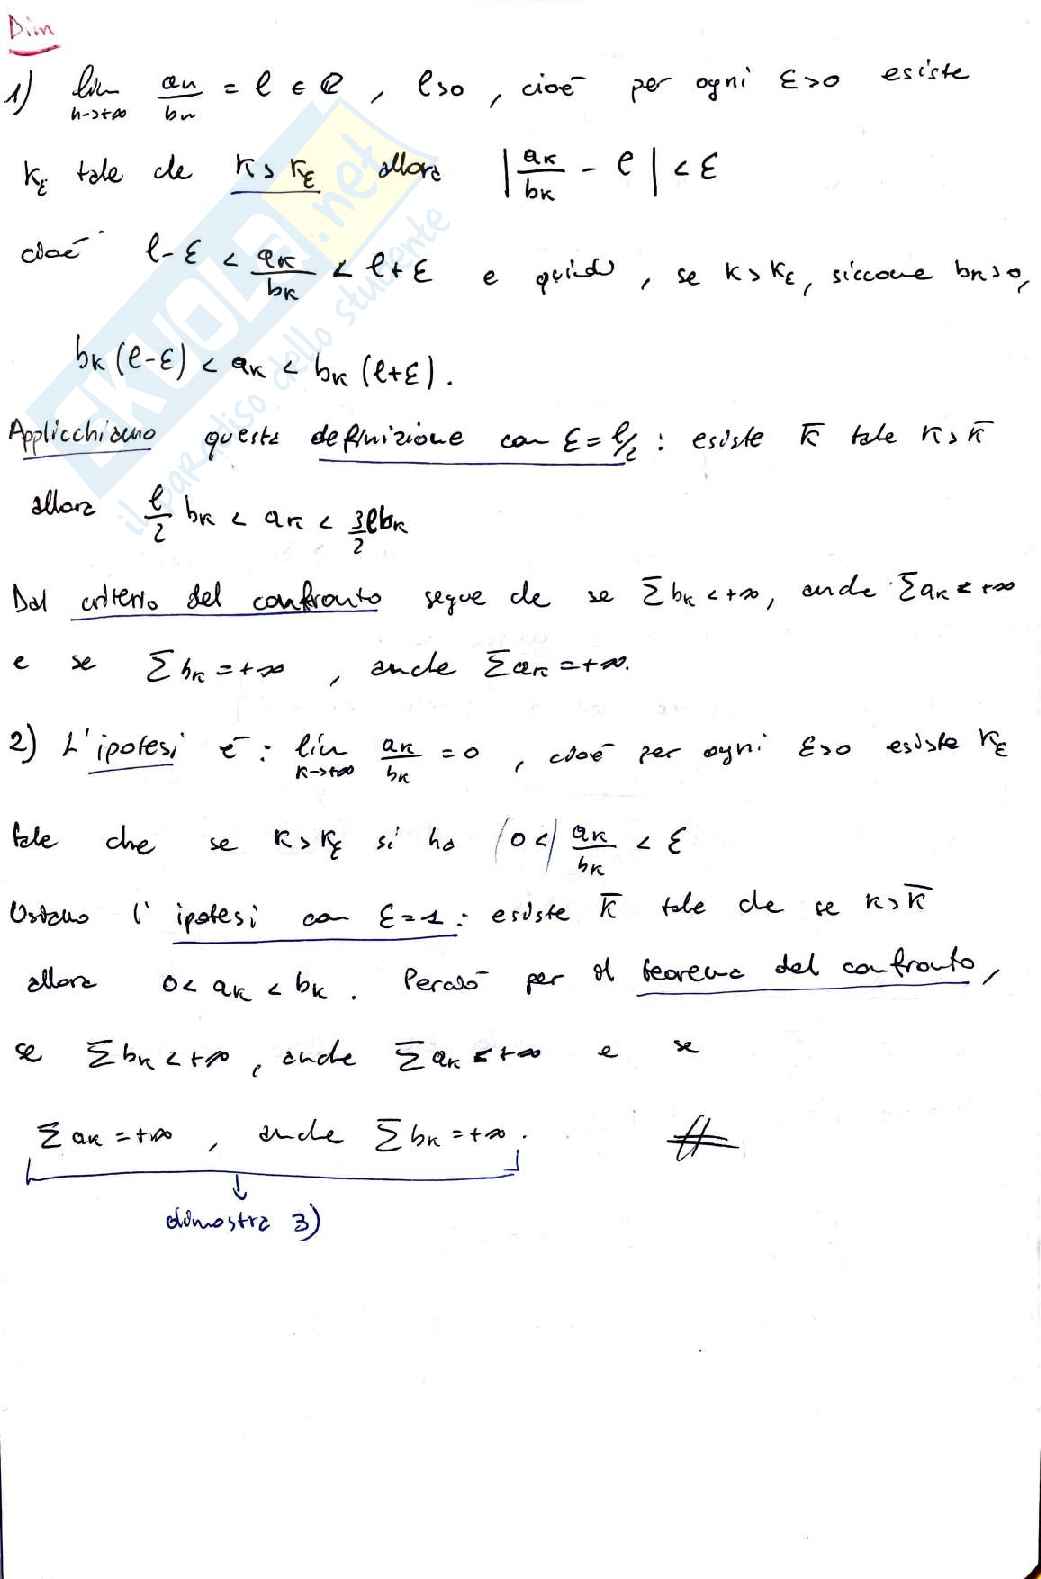 Dim
1) lim n→+∞ an/bn = l ∈ R, l>0, cioè per ogni ε>0 esiste
Kε tale che K>Kε allora |aK/bK - l| < ε
cioè l-ε < aK/bK < l+ε e quindi, se K>Kε, siccome bK>0,
bK(l-ε) < aK < bK(l+ε).
Applichiamo questa definizione con ε=l/2: esiste K̄ tale K>K̄
allora l/2 bK < aK < 3lbK/2
Dal criterio del confronto segue che se ΣbK<+∞, anche ΣaK<+∞
e se ΣbK=+∞, anche ΣaK=+∞.
2) L'ipotesi è: lim K→+∞ aK/bK = 0, cioè per ogni ε>0 esiste Kε
tale che se K>Kε si ha (0<) aK/bK < ε
Usiamo l'ipotesi con ε=1: esiste K̄ tale che se K>K̄
allora 0< aK < bK. Perciò per il teorema del confronto,
se ΣbK<+∞, anche ΣaK<+∞ e se
ΣaK=+∞, anche ΣbK=+∞. #
dimostra 3)
SKUOLA.net
il paradiso dello studente